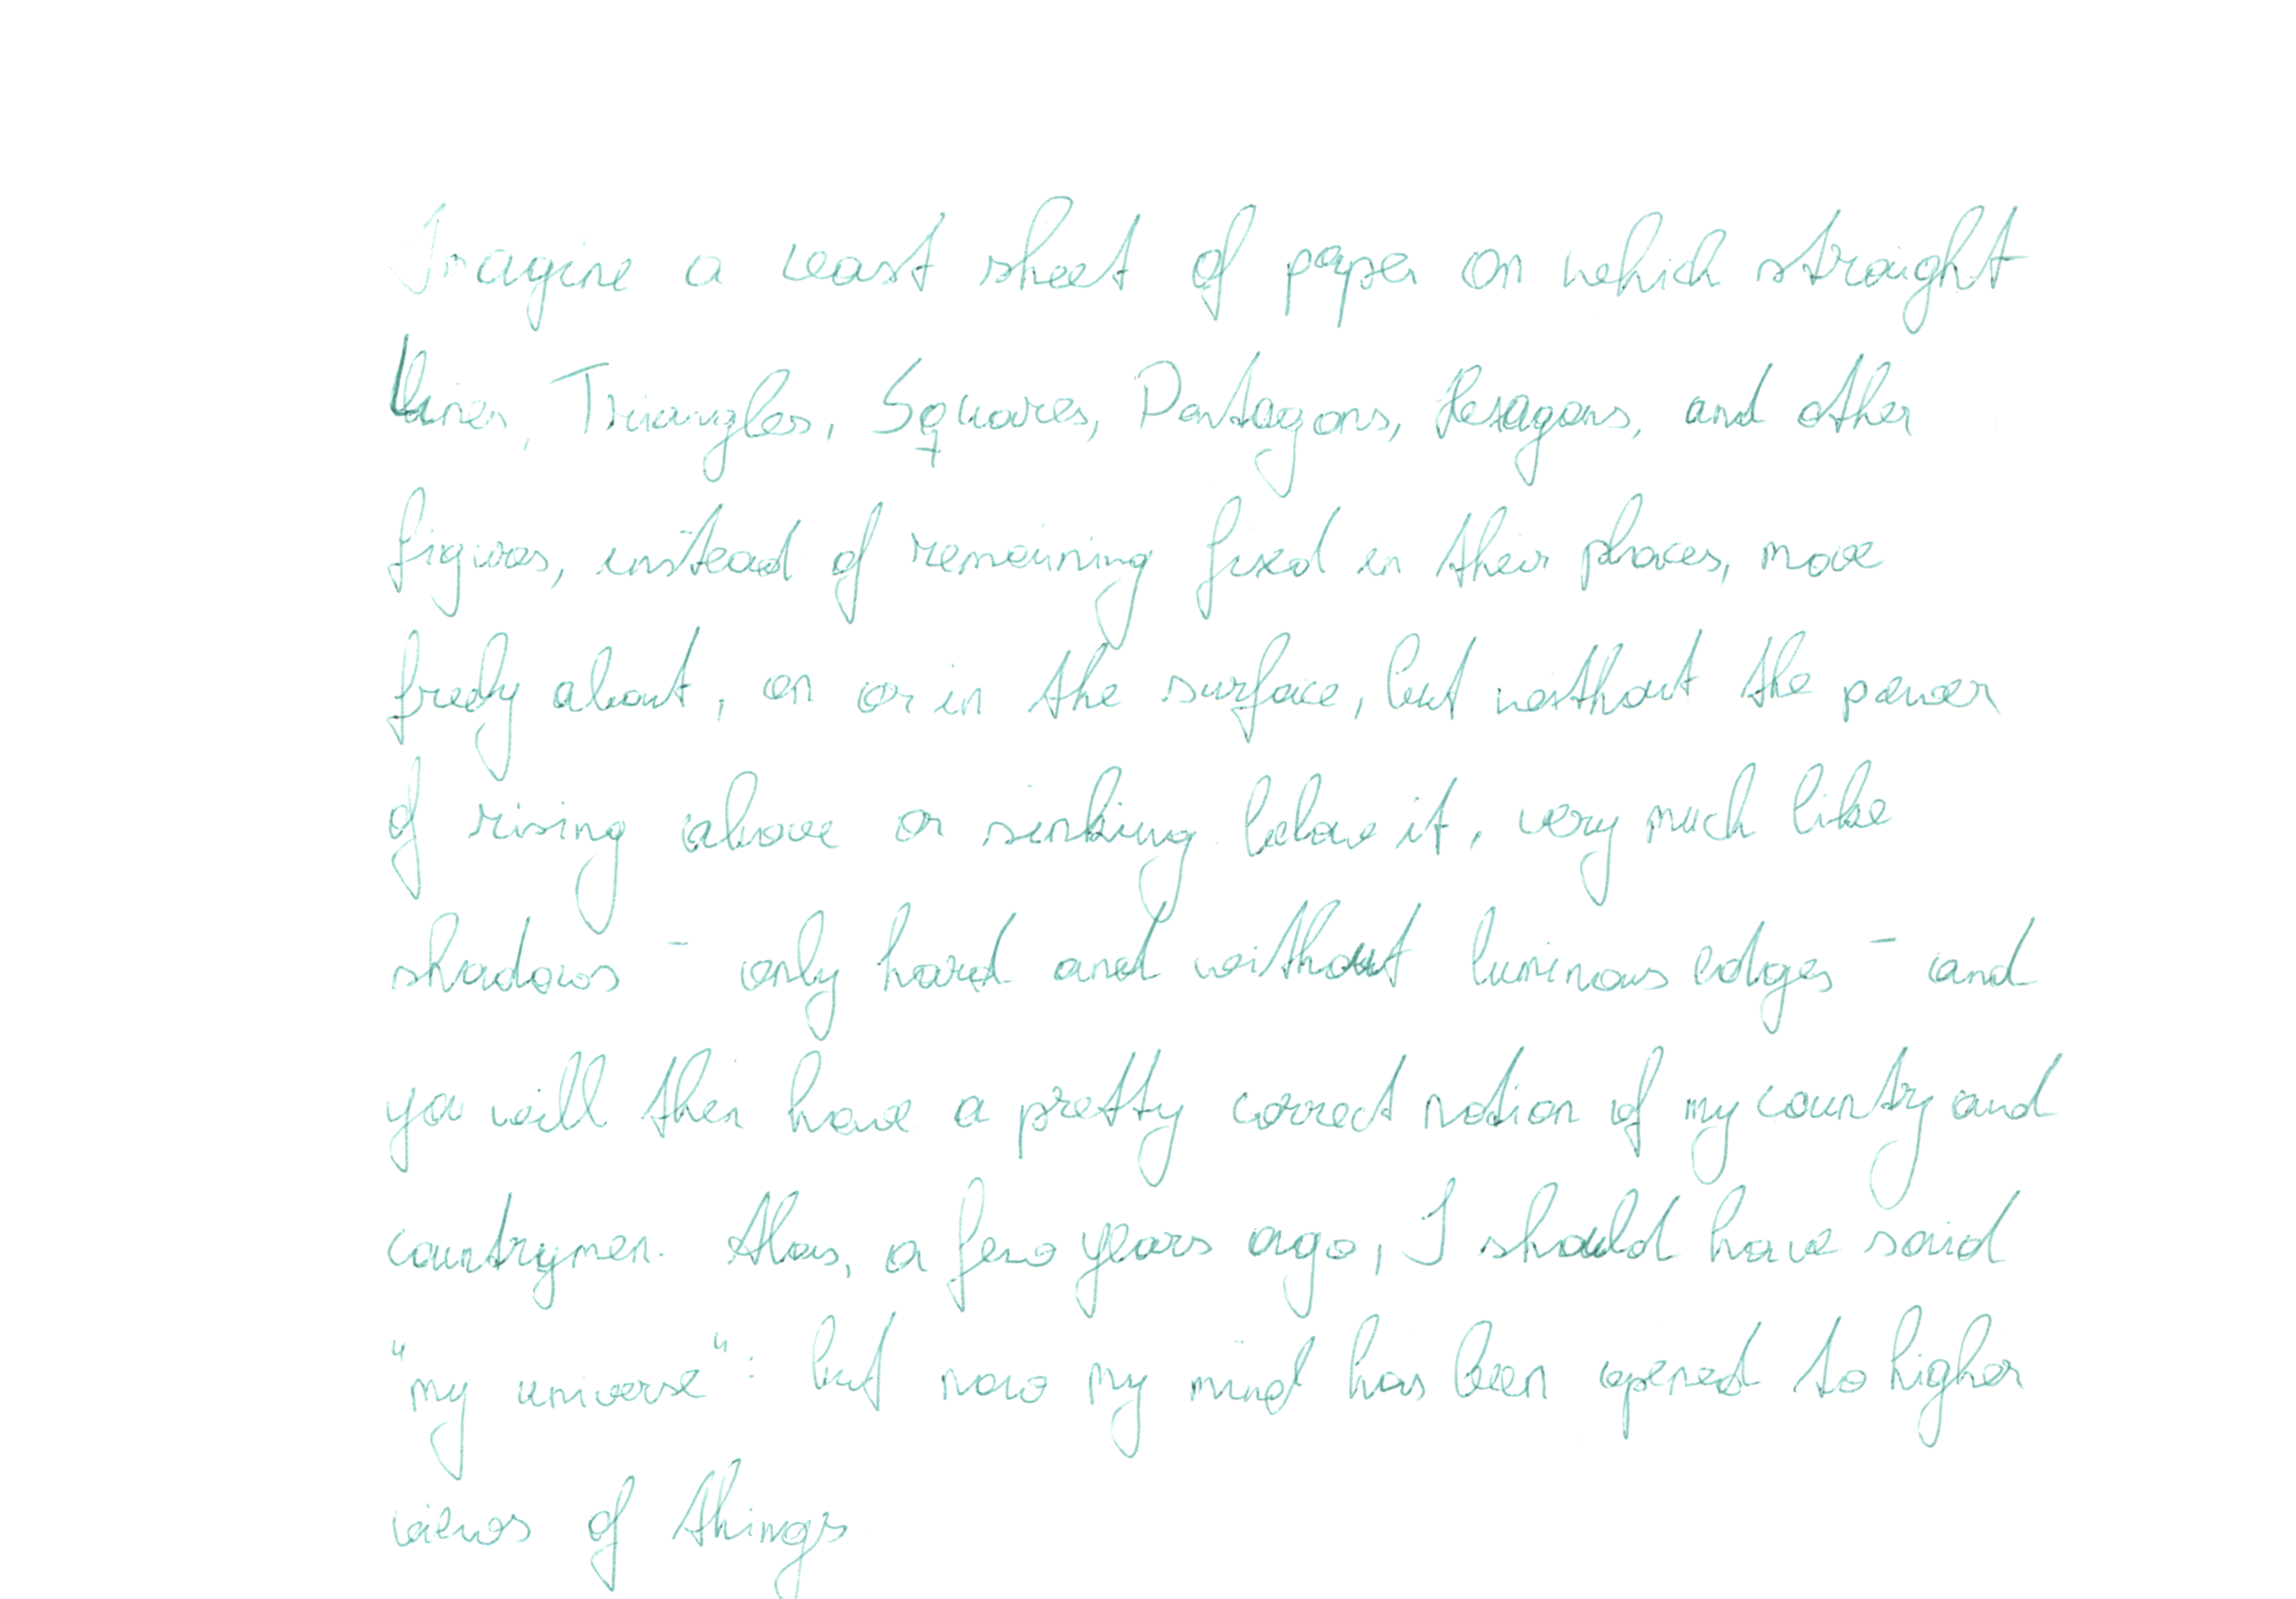 Imagine a vast sheet of paper on which straight
lines, Triangles, Squares, Pentagons, Hexagons, and other
figures, instead of remaining fixed in their places, move
freely about, on or in the surface, but without the power
of rising above or sinking below it, very much like
shadows - only hard and without luminous edges - and
you will then have a pretty correct notion of my country and
countrymen. Alas, a few years ago, I should have said
"my universe": but now my mind has been opened to higher
views of things